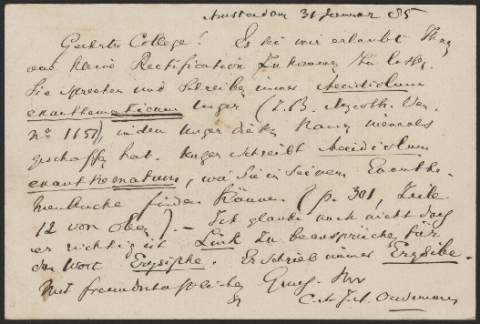 Amsterdam 31 Januar 85
Geehrter College! Es sei mir erlaubt Ihnen
eine kleine Rectification zukommen zu lassen.
Sie sprechen und schreiben immer Aecidiolum
exanthematicum Unger (z. B. Mycoth. Ven.
no 1151), indem Unger diesen Namen niemals
geschaffen hat. Unger schreibt Aecidiolum
exanthematum, wie Sie in seinem Exanthe-
menbuche finden können (p. 301, Zeile
12 von oben). – Ich glaube auch nicht dass
er richtig ist Link zu beanspruchen für
das Wort Erysiphe. Er schrieb immer Erysibe.
Mit freundschaftlichem Gruss. Ihr
C.A.J.A. Oudemans